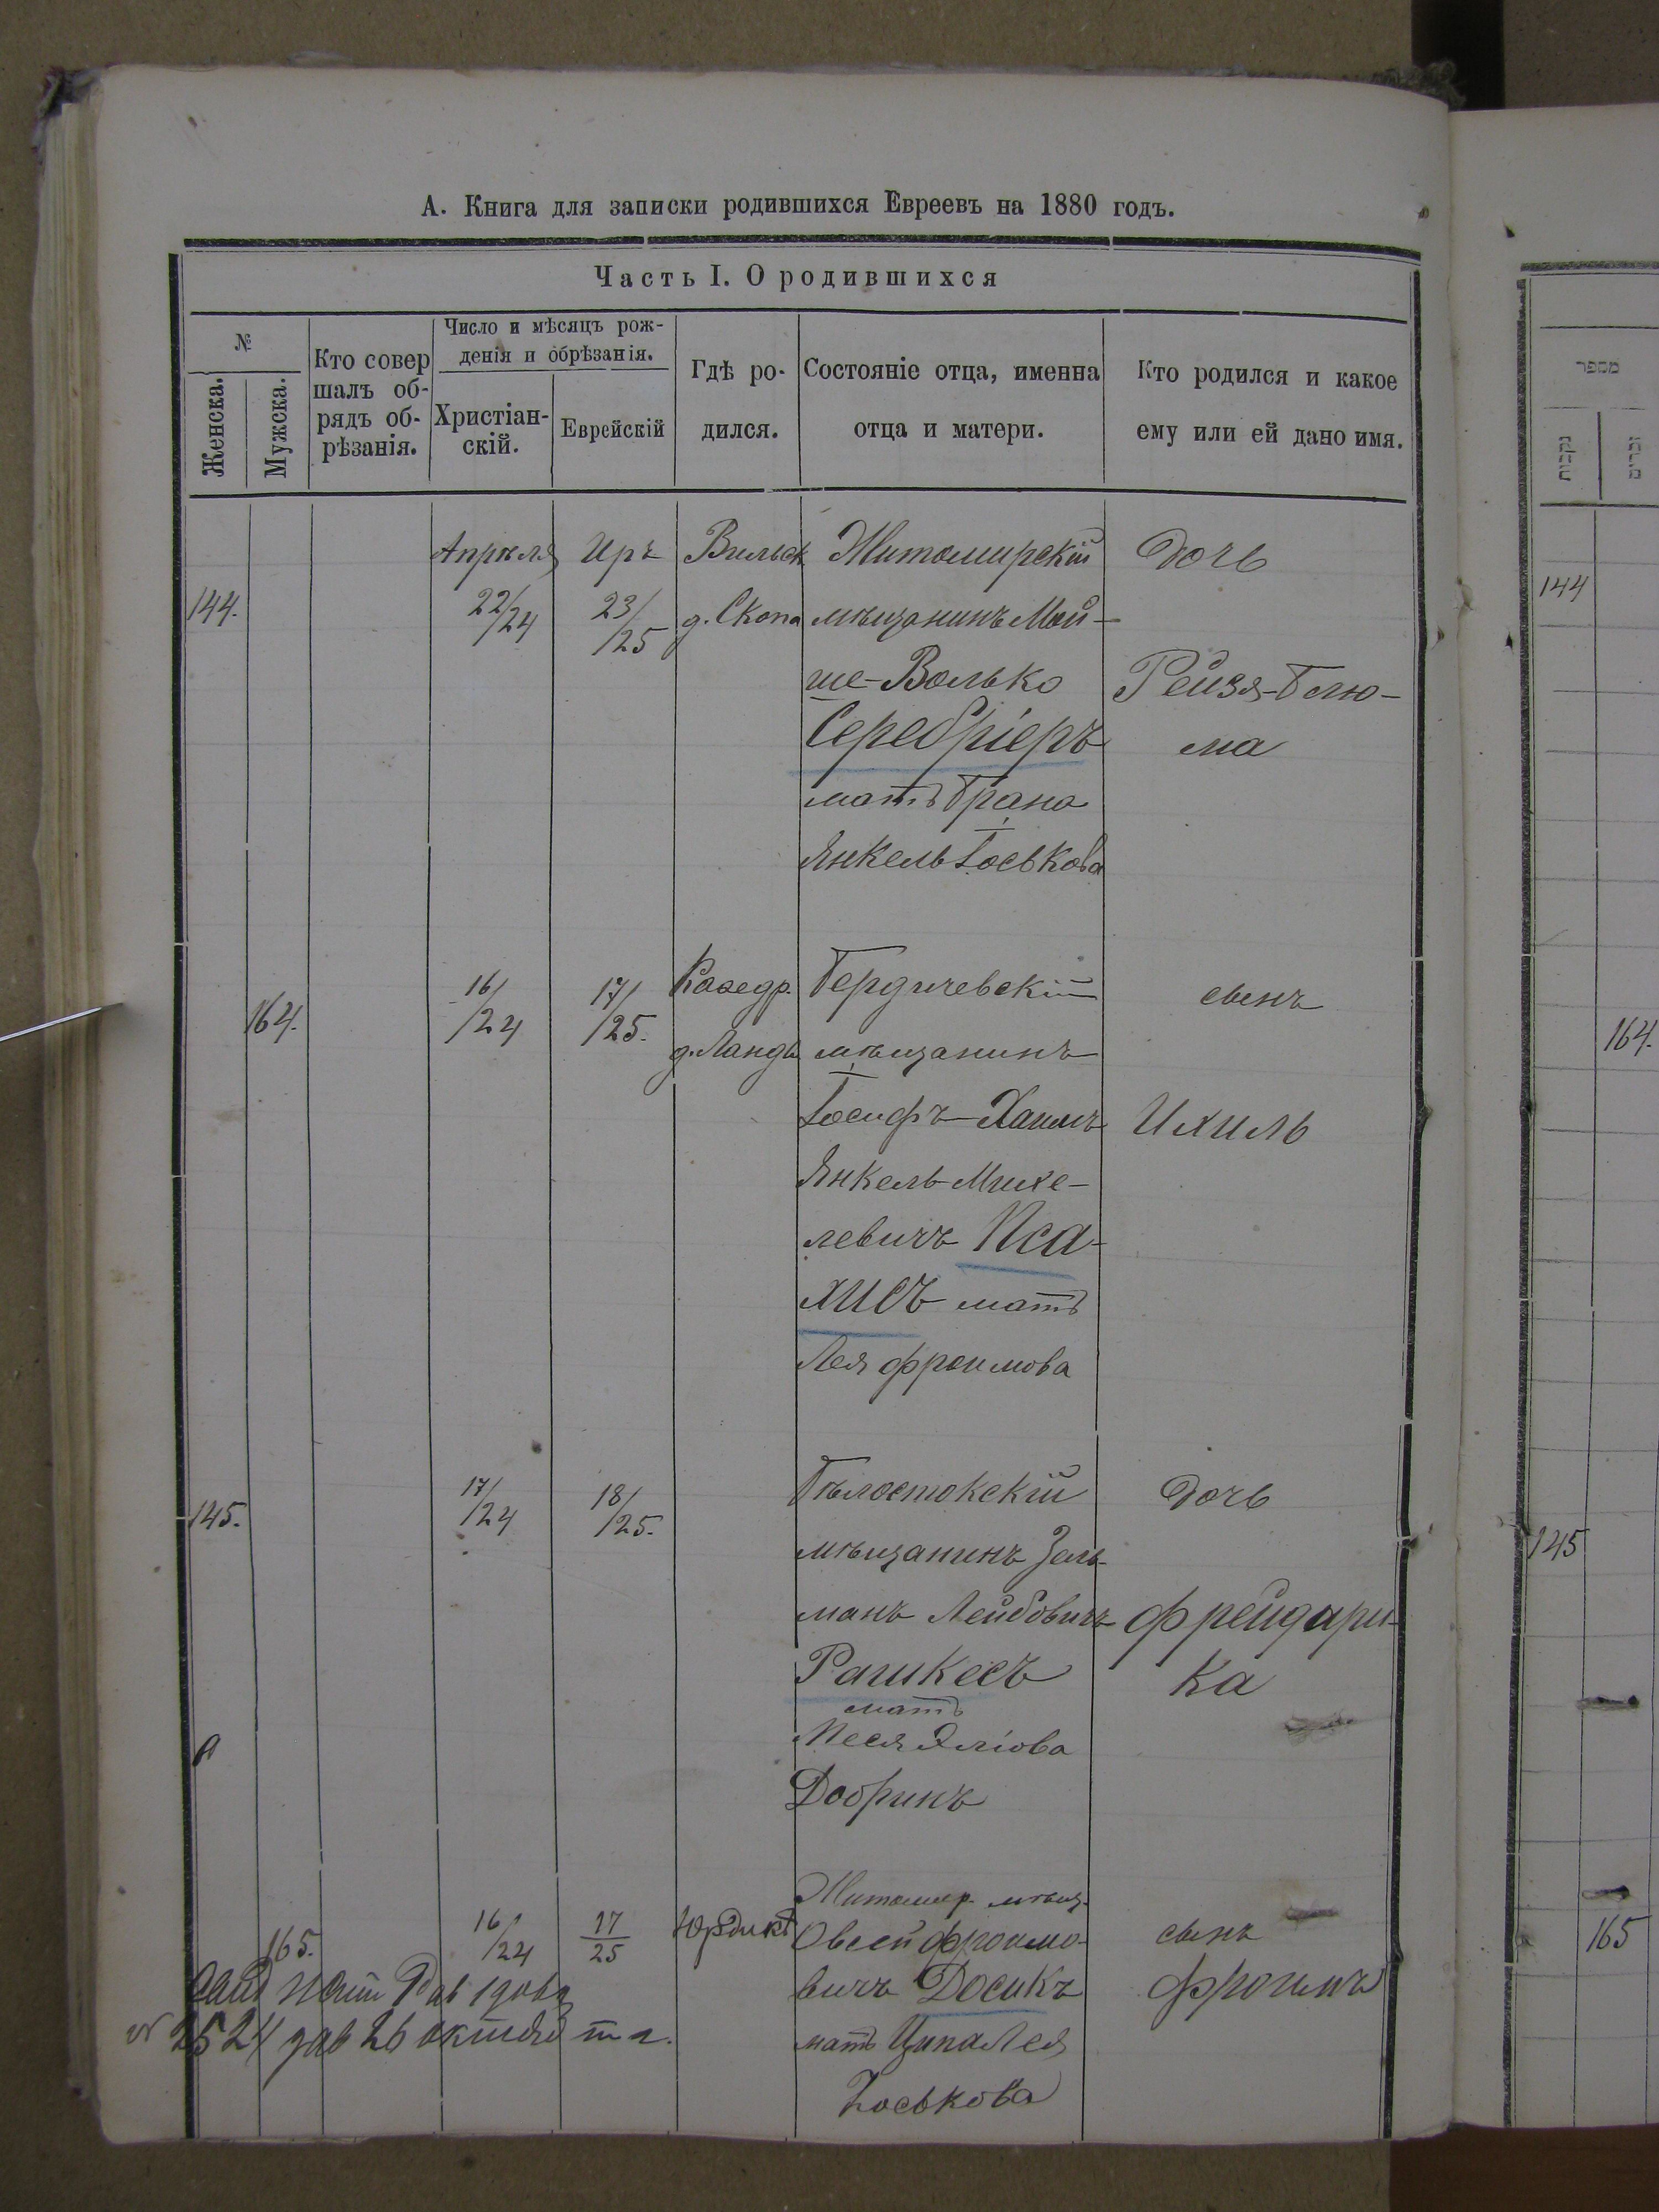 А. Книга для записки родившихся Евреевъ на 1880 годъ.
Часть I. О родившихся
№
Женска.
Мужска.
Кто совер
шалъ об-
рядъ об-
рѣзанія.
Число и мѣсяцъ рож-
денія и обрѣзанія.
Христіан-
скій.
Еврейскій
Гдѣ ро-
дился.
Состояніе отца, именна
отца и матери.
Кто родился и какое
ему или ей дано имя.
144.
Апрѣля
22/24
Иръ
23/25
Вильск
д. Скопа
Житомирскій
мѣщанинъ Мой-
ше-Волько
Серебріеръ
мать Брана
Янкель Іоськова
дочь
Рейзя-Блю-
ма
164.
16/24
17/25.
Каѳедр.
д. Ландъ
Бердичевскій
мѣщанинъ
Іосифъ-Хаимъ
Янкель-Михе-
левичъ Пса-
хисъ мать
Лея Фроимова
сынъ
Ихиль
145.
17/24
18/25.
Бѣлостокскій
мѣщанинъ Зель-
манъ Лейбовичъ
Рашкесъ
мать
Песя Эліова
Добринъ
дочь
Фрейдари-
ка
165.
16/24
17/25
Житомир. мѣщ.
Овсей Фроимо-
вичъ Досикъ
мать Ципа Лея
Іоськова
сынъ
Фроимъ
№ 2524 26 октября т. г.
מספר
נקבות
זכרים
144
164.
145
165